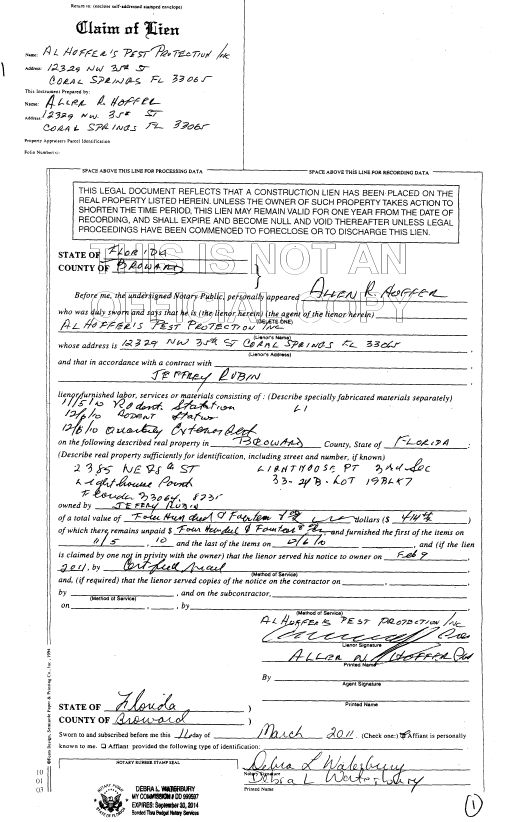 Return to: (enclose self-addressed stamped envelope)
Claim of Lien
Name: AL HOFFER'S PEST PROTECTION INC
Address: 12329 NW 35th ST
CORAL SPRINGS FL 33065
This Instrument Prepared by:
Name: ALLEN R. HOFFER
Address: 12329 NW. 35th ST
CORAL SPRINGS FL 33065
Property Appraisers Parcel Identification
Folio Number(s):
SPACE ABOVE THIS LINE FOR PROCESSING DATA
SPACE ABOVE THIS LINE FOR RECORDING DATA
THIS LEGAL DOCUMENT REFLECTS THAT A CONSTRUCTION LIEN HAS BEEN PLACED ON THE
REAL PROPERTY LISTED HEREIN. UNLESS THE OWNER OF SUCH PROPERTY TAKES ACTION TO
SHORTEN THE TIME PERIOD, THIS LIEN MAY REMAIN VALID FOR ONE YEAR FROM THE DATE OF
RECORDING, AND SHALL EXPIRE AND BECOME NULL AND VOID THEREAFTER UNLESS LEGAL
PROCEEDINGS HAVE BEEN COMMENCED TO FORECLOSE OR TO DISCHARGE THIS LIEN.
THIS IS NOT AN
OFFICIAL COPY
STATE OF FLORIDA
COUNTY OF BROWARD
Before me, the undersigned Notary Public, personally appeared ALLEN R. HOFFER
who was duly sworn and says that he is (the lienor herein) (the agent of the lienor herein)
(DELETE ONE)
AL HOFFER'S PEST PROTECTION INC
(Lienor's Name)
whose address is 12329 NW 35th ST CORAL SPRINGS FL 33065
(Lienor's Address)
and that in accordance with a contract with
JEFFREY RUBIN
lienor furnished labor, services or materials consisting of: (Describe specially fabricated materials separately)
11/5/10 Rodent Station
12/6/10 RODENT
12/6/10 Quarterly Exterior
on the following described real property in BROWARD County, State of FLORIDA :
(Describe real property sufficiently for identification, including street and number, if known)
2385 NE 28th ST LIGHTHOUSE PT 3rd Sec
Lighthouse Point 33-24B-LOT 19 BLK 7
Florida 33064. 8235
owned by JEFFREY RUBIN
of a total value of Four Hundred & Fourteen dollars ($ 414 )
of which there remains unpaid $ Four Hundred & Fourteen and furnished the first of the items on
11/5 , 10 and the last of the items on 12/6/10 , and (if the lien
is claimed by one not in privity with the owner) that the lienor served his notice to owner on Feb 9
2011, by Certified Mail
(Method of Service)
and, (if required) that the lienor served copies of the notice on the contractor on ,
by , and on the subcontractor,
(Method of Service)
on , , by
(Method of Service)
AL HOFFER'S PEST PROTECTION INC
Pres
Lienor Signature
ALLEN R HOFFER Pres
Printed Name
By
Agent Signature
Printed Name
STATE OF Florida )
COUNTY OF Broward )
Sworn to and subscribed before me this 11 day of March 2011. (Check one:) Affiant is personally
known to me. ☐ Affiant provided the following type of identification:
NOTARY RUBBER STAMP SEAL
Debra L Waterbury
Notary Signature
Debra L Waterbury
Printed Name
DEBRA L. WATERBURY
MY COMMISSION # DD 999597
EXPIRES: September 20, 2014
Bonded Thru Budget Notary Services
NOTARY PUBLIC
STATE OF FLORIDA
10
01
03
1